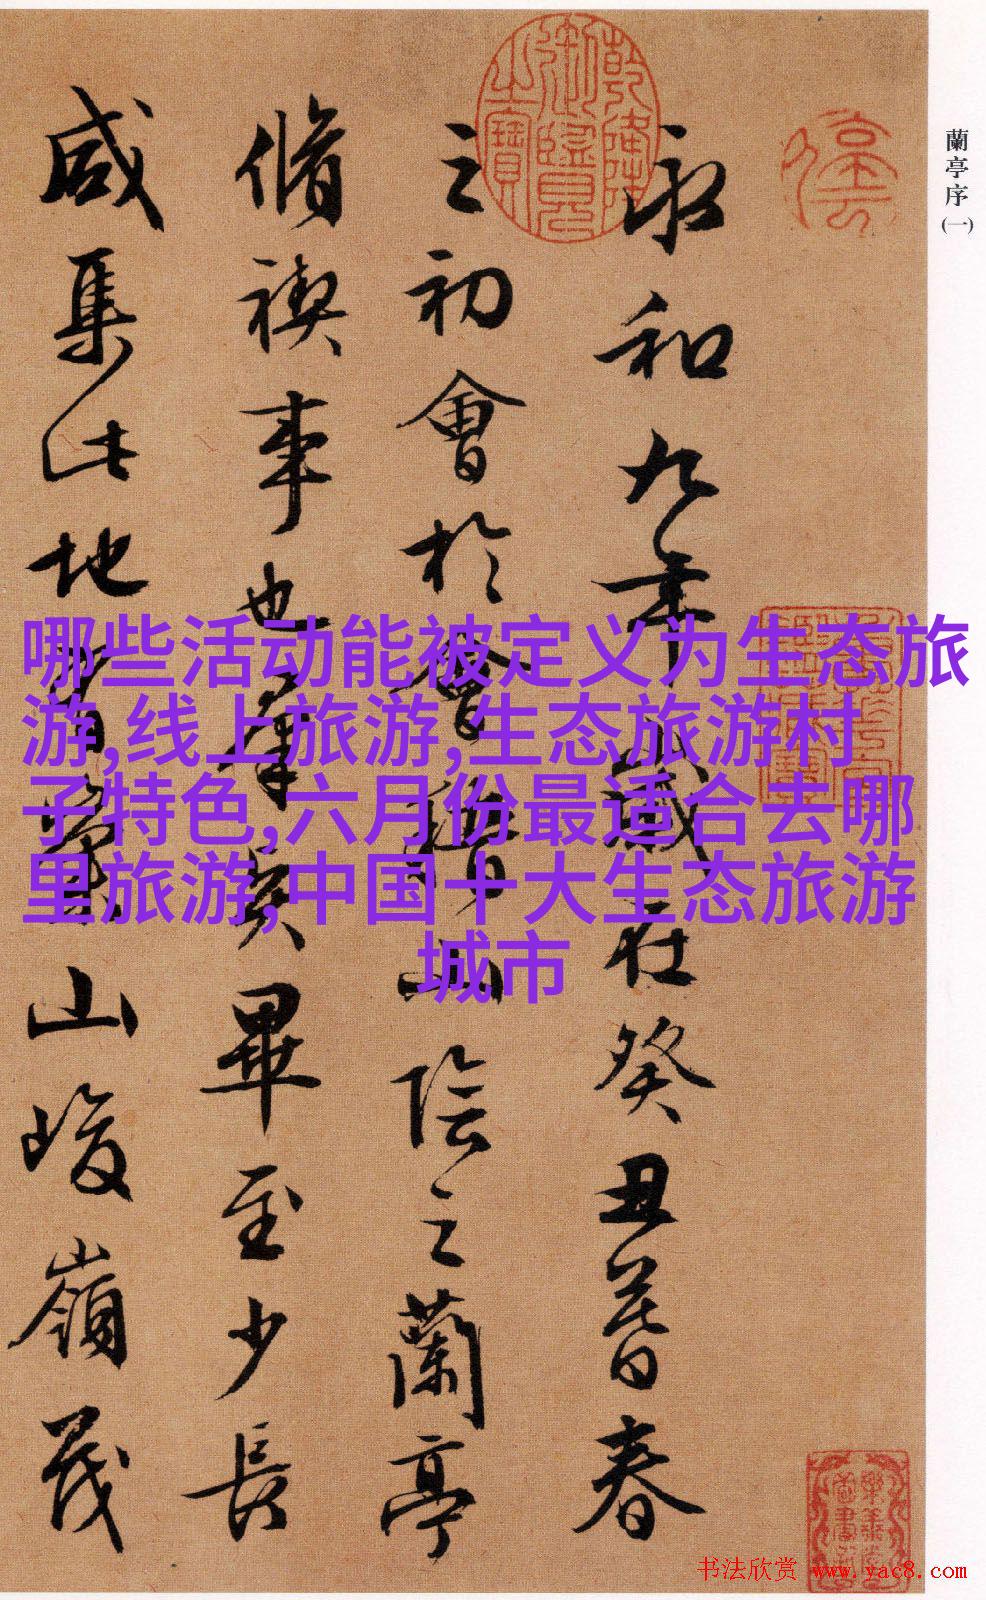 蘭亭序(一)
永和九年歲在癸丑暮春
之初會於會稽山陰之蘭亭
脩禊事也羣賢畢至少長
咸集此地有崇山峻嶺茂
乾隆御覽之寶
哪些活动能被定义为生态旅
游,线上旅游,生态旅游村
子特色,六月份最适合去哪
里旅游,中国十大生态旅游
城市
书法欣赏 www.yac8.com